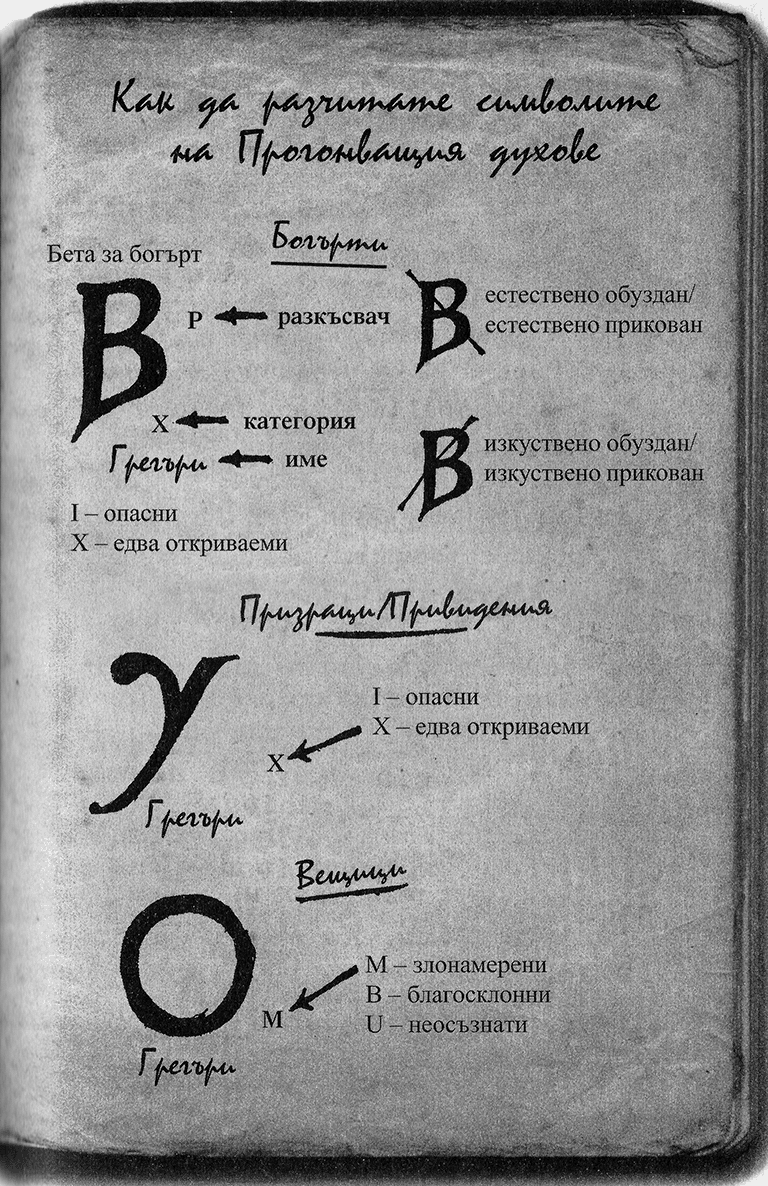 Как да разчитате символите
на Прогонващия духове
Богърти
Бета за богърт
B
Р разкъсвач
X категория
Грегъри име
I – опасни
X – едва откриваеми
B естествено обуздан/
естествено прикован
B изкуствено обуздан/
изкуствено прикован
Призраци/Привидения
γ
I – опасни
X – едва откриваеми
X
Грегъри
Вещици
O
M – злонамерени
B – благосклонни
U – неосъзнати
M
Грегъри